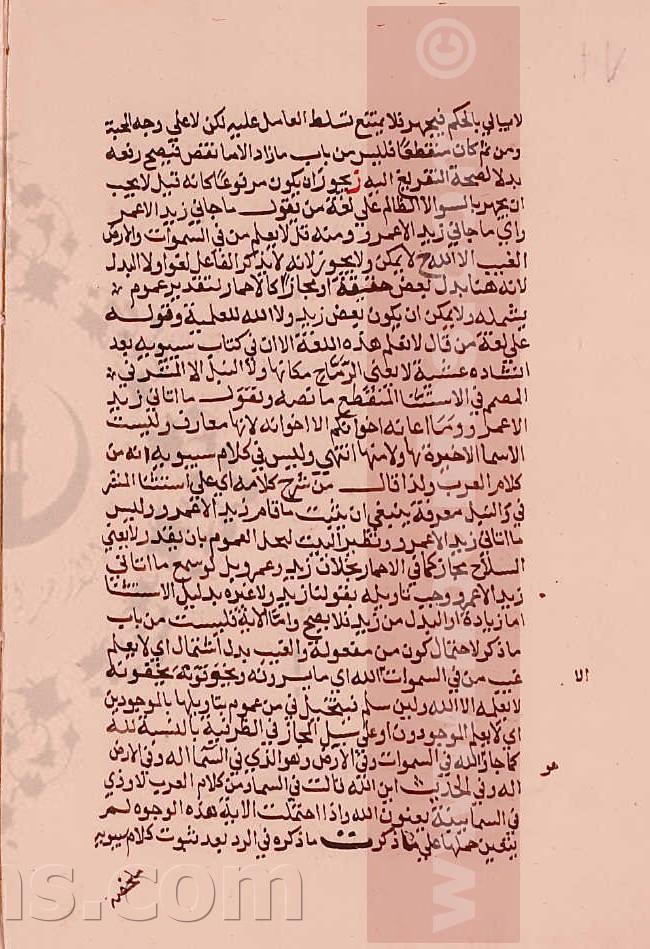 لا يبالي بالحكم فيجهر فلا يمتنع تسلط العامل عليه لكن لا على وجه
ومن ثم كان منقطعا فليس من باب ما زاد الا ما نقص فيصح رفعه
بدلا لصحة التفريغ اليه ز يجوز ان يكون مرفوعا كانه قيل لا يجب
ان يجهر بالسو الا الظالم علي لغة من يقول ما جاني زيد الا عمرو
راي ما جاني زيد الا عمرو ومنه قل لا يعلم من في السموات والارض
الغيب الا الله لا يمكن ولا يجوز لانه لا يذكر الفاعل لغوا ولا البدل
لانه هنا بدل بعض حقيقة او مجازا كالاحمار لتقدير عموم
يشمله ولا يمكن ان يكون بعض زيد ولا الله للعلمية وقوله
علي لغة من قال لا نعلم هذه اللغة الا ان في كتاب سيبويه بعد
انشاده عشية لا يغني الرماح مكانها ولا النبل الا المشرفي
المصمم في الاستثنا المنقطع ما نصه ويقول ما اتاني زيد
الا عمرو وما اعانه اخوانكم الا اخوانه لانها معارف وليست
الاسما الاخيرة بها ولا منها انتهي وليس في كلام سيبويه انه من
كلام العرب ولذا قال من شرح كلامه اي علي استثنا المشر
في والنبل معرفة ينبغي ان يثبت ما قام زيد الا عمرو وليس
ما اتاني زيد الا عمرو ونظير البيت لتخيل العموم بان يقدر ولا يغني
السلاح مجازا كما في الاحمار بخلاف زيد وعمرو بل لو سمع ما اتاني
زيد الا عمرو وجب تاويله بقولنا زيد ولا غيره بدليل الاستثنا
اما زيادة او البدل من زيد فلا يصح واما الاية فليست من باب
ما ذكر لاحتمال كون من مفعوله والغيب بدل اشتمال اي لا يعلم
غيب من في السموات الله اي ما يسرونه ويخفونه
لا يعلمه الا الله ولين سلم فيتخيل في من عموم بتاويلها بالموجودين
اي لا يعلم الموجودون او علي سبيل المجاز في الظرفية بالنسبة لله
كما جاز الله في السموات وفي الارض وهو الذي في السما اله وفي الارض
اله وفي الحديث اين الله قالت في السما ومن كلام العرب لا وذي
في السما بيته يعنون الله واذا احتملت الاية هذه الوجوه لم
يتعين حملها علي ما ذكرت ما ذكره في الرد بعد ثبوت كلام سيبويه
الا
هو